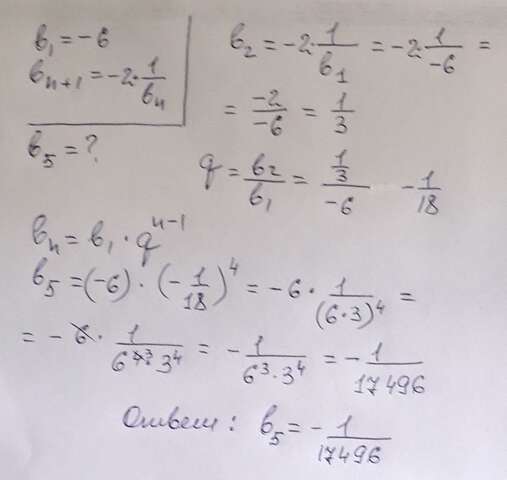 в₁ = -6
вₙ₊₁ = -2·1/вₙ
в₅ = ?
в₂ = -2·1/в₁ = -2·1/-6 =
= -2/-6 = 1/3
q = в₂/в₁ = 1/3/-6 -1/18
вₙ = в₁·qⁿ⁻¹
в₅ = (-6)·(-1/18)⁴ = -6·1/(6·3)⁴ =
= -6·1/6⁴³·3⁴ = -1/6³·3⁴ = -1/17496
Ответ: в₅ = -1/17496